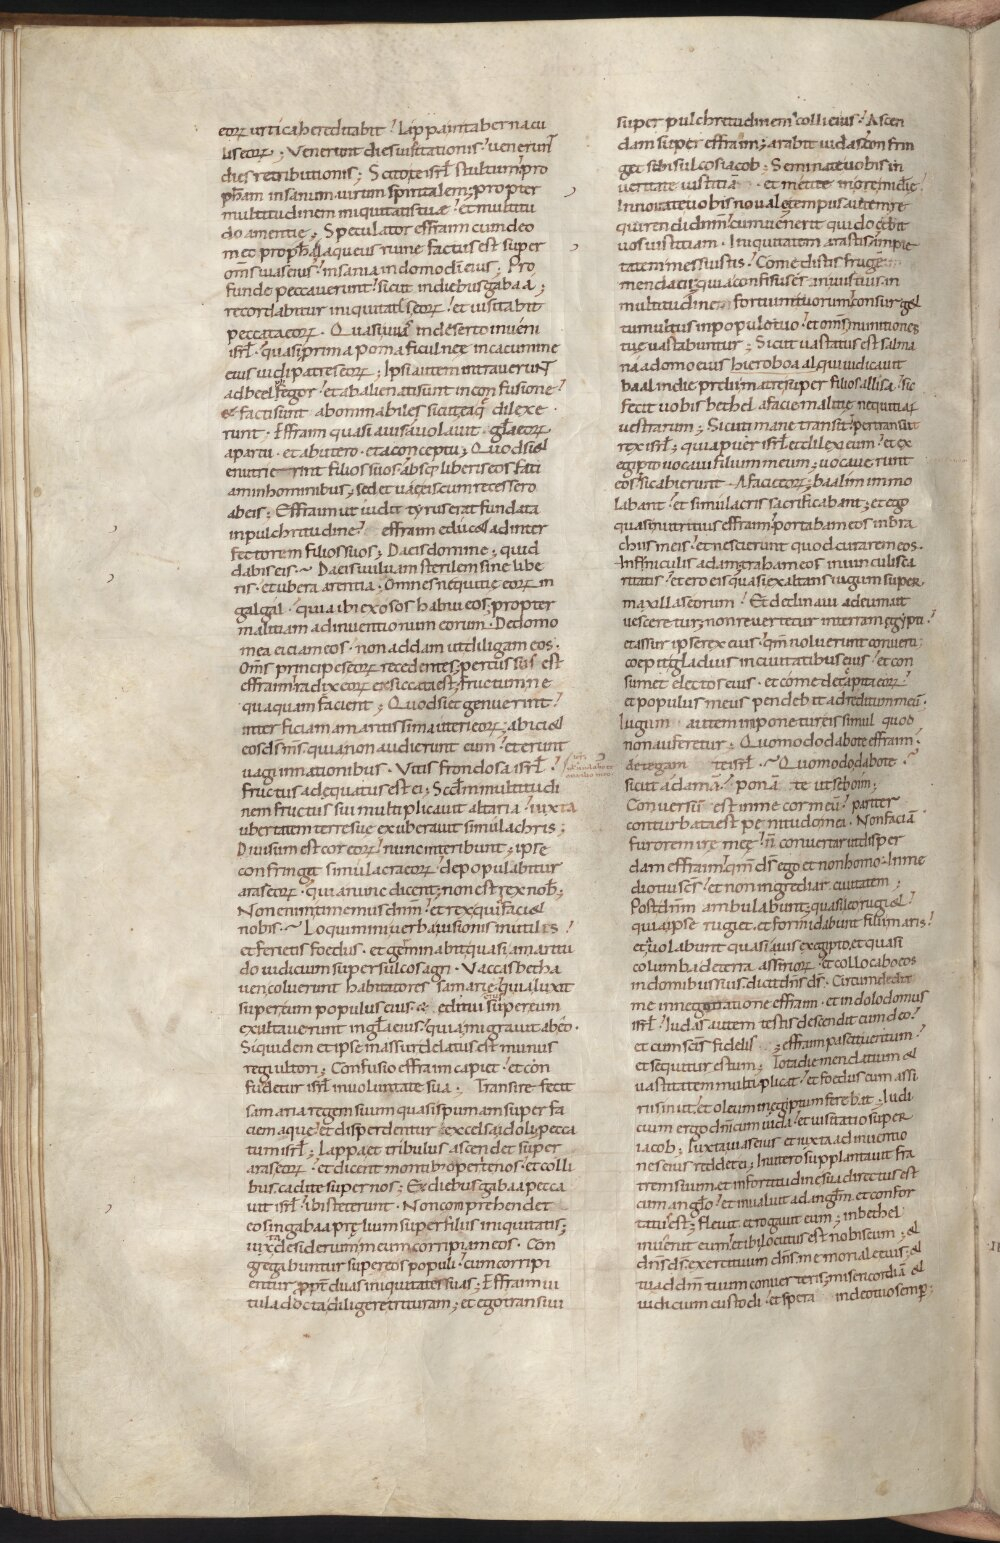 eorꝝ urtica hereditabit ! Lappa in tabernacu
lis eorꝝ ; Venerunt dies uisitationis ! uenerunt
dies retributionis ; Scitote isrł stultum pro
phām insanum uirum spiritalem ; propter
multitudinem iniquitatis tuæ ! et multitu
do amentie ; Speculator effraim cum deo
meo propheta laqueus ruine factus est super
oms uias eius ! insania in domo dī eius ; Pro
funde peccauerunt ! sicut in diebus gabaa ;
recordabitur iniquitatis eorꝝ ! et uisitabit
peccata eorꝝ . Quasi uuas in deserto inueni
isrł . quasi prima poma ficulneę in cacumine
eius uidi patres eorꝝ ; Ipsi autem intrauerunt
ad beelfegor ! et abalienati sunt in confusione !
et facti sunt abominabiles sicut ea quę dilexe
runt . Effraim quasi auis auolauit . gła eorꝝ
a partu . et ab utero . et a conceptu ; Quod si &
enutrierint filios suos ! absq liberis eos faci
am in hominibus ; sed et uae eis cum recessero
ab eis ; Effraim ut uidi tyrus erat fundata
in pulchritudine ! effraim educ& ad inter
fectorem filios suos ; Da eis domine ; quid
dabis eis . ~ Da eis uuluam sterilem sine libe
ris . et ubera arentia . Omnes nequitie eorꝝ in
galgal . quia ibi exosos habui eos ; propter
malitiam adinuentionum eorum . De domo
mea eiciam eos . non addam ut diligam eos .
Oms principes eorꝝ recedentes ; percussus est
effraim ! radix eorꝝ exsiccata est ; fructum ne
quaquam facient ; Quod si et genuerint !
interficiam amantissima uteri eorꝝ ; abici&
eos ds ms . quia non audierunt eum ! et erunt
uagi in nationibus . Vitis frondosa isrł !
fructus adequatus est ei ; Scdm multitudi
nem fructus sui multiplicauit altaria ! iuxta
ubertatem terre sue exuberauit simulachris ;
Diuisum est cor eorꝝ ! nunc interibunt ; ipse
confringit simulacra eorꝝ ! depopulabitur
aras eorꝝ . quia nunc dicent ; non est rex nob ;
Non enim timemus dnm ! et rex quid faci&
nobis . ~ Loquimini uerba uisionis inutilis !
et ferietis foedus . et germinabit quasi amaritu
do iudicium super sulcos agri . Vaccas betha
uen coluerunt habitatores samarie . quia luxit
super eum populus eius . et editui eius super eum
exultauerunt in gła eius ! quia migrauit ab eo .
Siquidem et ipse in assur delatus est munus
regi ultori ; Confusio effraim capiet ! et con
fudetur isrł in uoluntate sua . Transire fecit
samaria regem suum quasi spumam super fa
ciem aque ! et disperdentur excelsa idoli ; pecca
tum isrł ; Lappa et tribulus ascendet super
aras eorꝝ ! et dicent montibꝫ operite nos ! et colli
bus . cadite super nos ; Ex diebus gabaa pecca
uit isrł ! ibi steterunt . Non comprehendet
eos in gabaa pręlium super filius iniquitatis ;
iuxta desiderium meum corripiam eos . Con
gregabuntur super eos populi . cum corripi
entur ꝓpt duas iniquitates suas ; Effraim ui
tula docta diligere trituram ; et ego transiui
super pulchritudinem colli eius ! Ascen
dam super effraim ; arabit iudas confrin
get sibi sulcos iacob ; Seminate uobis in
ueritate iustitiā . et metite in ore m̄dię !
Innouate uobis nouale ; tempus autem re
quirendi dnm ! cum uenerit qui docebit
uos iustitiam . Iniquitatem arastis ; impie
tatem messuistis ! Comedistis fruge
mendatii ; quia confisus es in uiis tuis in
multitudine fortium tuorum ! consurg&
tumultus in populo tuo ! et oms munitiones
tue uastabuntur ; Sicut uastatus est salma
na a domo eius hieroboal qui uidicauit
baal in die prelii matre super filios allisa ! sic
fecit uobis bethel a facie malitie nequitiarum
uestrarum ; Sicuti mane transiit ! pertransiit
rex isrł ; quia puer isrł et dilexi eum ! et ex
egipto uocaui filium meum ; uocauerunt
eos ! sic abierunt . A facie eorꝝ ; baalim immo
labant ! et simulacris sacrificabant ; et ego
quasi nutritius effraim ! portabam eos in bra
chiis meis ! et nescierunt quod curarem eos .
In ffiniculis adam traham eos in uinculis ca
ritatis ! et ero eis quasi exaltans iugum super
maxillas eorum ! Et declinaui ad eum ut
uesceretur ; non reuertetur in terram ęgypti .
et assur ipse rex eius . qm̄ noluerunt conuerti ;
coepit gladius in ciuitatibus eius ! et con
sumet electos eius . et comedet capita eorꝝ !
et populus meus pendebit ad reditum meū .
Iugum autem imponetur eis simul quod
non auferetur . Quomodo dabo te effraim !
de tegam te isrł . ~ Quomodo dabo te
sicut adamā ! ponā te ut seboim ;
Conuersū est in me cor meū ! pariter
conturbata est penitudo mei . Non faciā
furorem irę meę ! n̄ conuertar ut disper
dam effraim ! qm ds ego et non homo . In me
dio tui scs ! et non ingrediar ciuitatem ;
Post dnm ambulabunt ; quasi leo rugi& !
quia ipse rugiet . et formidabunt filii maris !
et uolabunt quasi auis ex egipto . et quasi
columba de terra assiriorꝝ . et collocabo eos
in domibus suis . dicit dns ds . Circumdedit
me in negotiatione effraim . et in dolo domus
isrł ! Iudas autem testis descendit cum deo !
et cum scis fidelis ; effraim pascit uentum !
et sequitur estum ; Tota die mendatium &
uastitatem multiplicat ! et foedus cum assi
riis iniit . et oleum in egiptum ferebat . Iudi
cium ergo dni cum iuda ! et uisitatio super
iacob ; Iuxta uias eius et iuxta adinuentio
nes eius reddet ei ; In utero supplantauit fra
trem suum et in fortitudine sua directus est
cum anglo ! et inualuit ad anglm . et confor
tatus est ; Fleuit et rogauit eum ; in bethel
inuenit eum ! et ibi locutus est nobiscum ; &
dns ds exercituum dns memoriale eius ; &
tu ad dm tuum conuerteris ; misericordiā &
iudicium custodi . et spera in deo tuo semꝑ ;